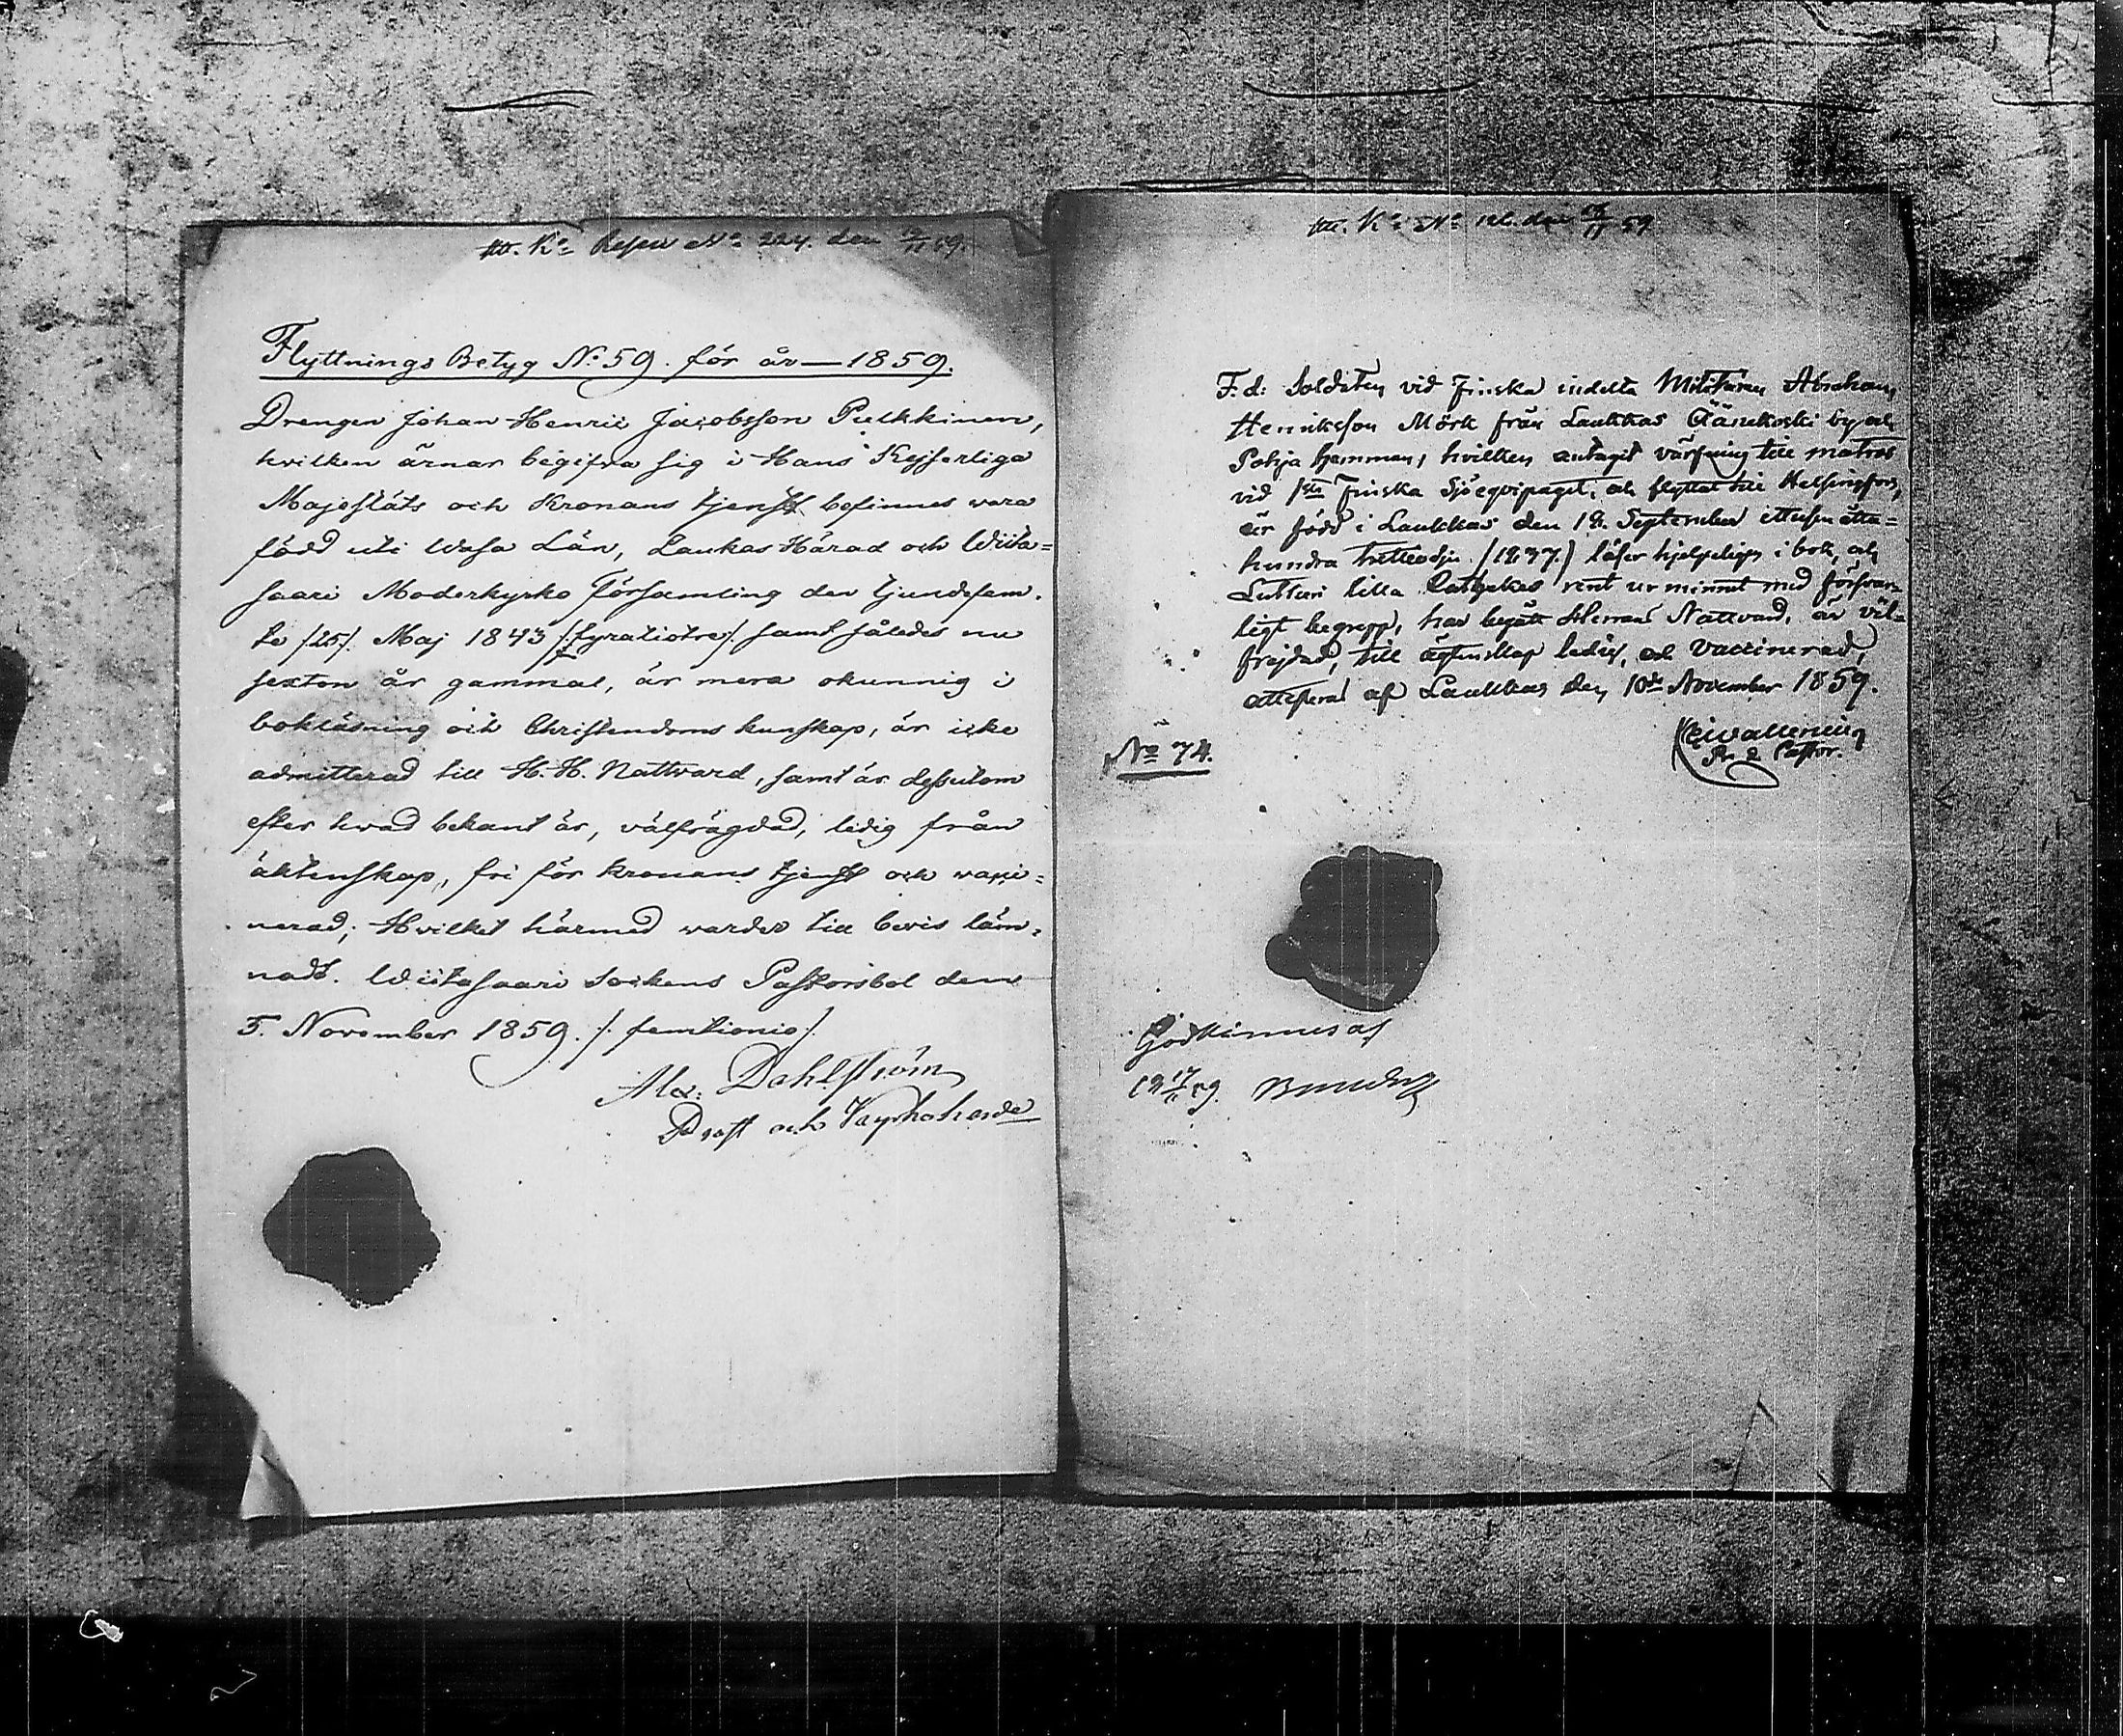 III. Ko. Resen No. 224. den 12/11 59.
Flyttnings Betyg No. 59. för år — 1859.
Drengen Johan Henric Jacobsson Pulkkinen,
hvilken ärnar begifva sig i Hans Kejserliga
Majestäts och Kronans tjenst befinnes vara
född uti Wasa Län, Laukas Härad och Wiita=
saari Moderkyrko Församling den tjundefem.
te /25/. Maj 1843 /:fyratiotre/. samt således nu
sexton år gammal, är mera okunnig i
bokläsning och Christendoms kunskap, är icke
admitterad till H. H. Nattvard, samt är dessutom
efter hwad bekant är, välfrägdad, ledig från
äktenskap, fri för kronans tjenst och vaxi=
nerad; Hvilket härmed warder till bevis läm=
nadt. Wiitasaari Sockens Pastorsbol den
5. November 1859. /: femtionio/.
Alex: Dahlström
Prost och Kyrkoherde
III. Ko. No. den 59
F. d. Soldaten vid Finska indelta Militären Abraham
Henriksson Mörk från Laukkas Äänekoski by och
Pohja hemman, hvilken antagit värfning till matros
vid 1sta Finska Sjöeqvipaget, och flyttat till Helsingfors,
är född i Laukkas den 18. September ettusen åtta=
hundra trettiosju /1837./ läser hjelpeligen i bok, och
Lutheri lilla Cathekes rent ur minnet med försvar=
ligt begrepp, har begått Herrans Nattvard, är väl=
frejdad, till ägtenskap ledig, och vaccinerad,
attesterad af Laukkas den 10de November 1859.
Pr. & Pastor.
No 74.
Godkinnes af
18 17/11 59.